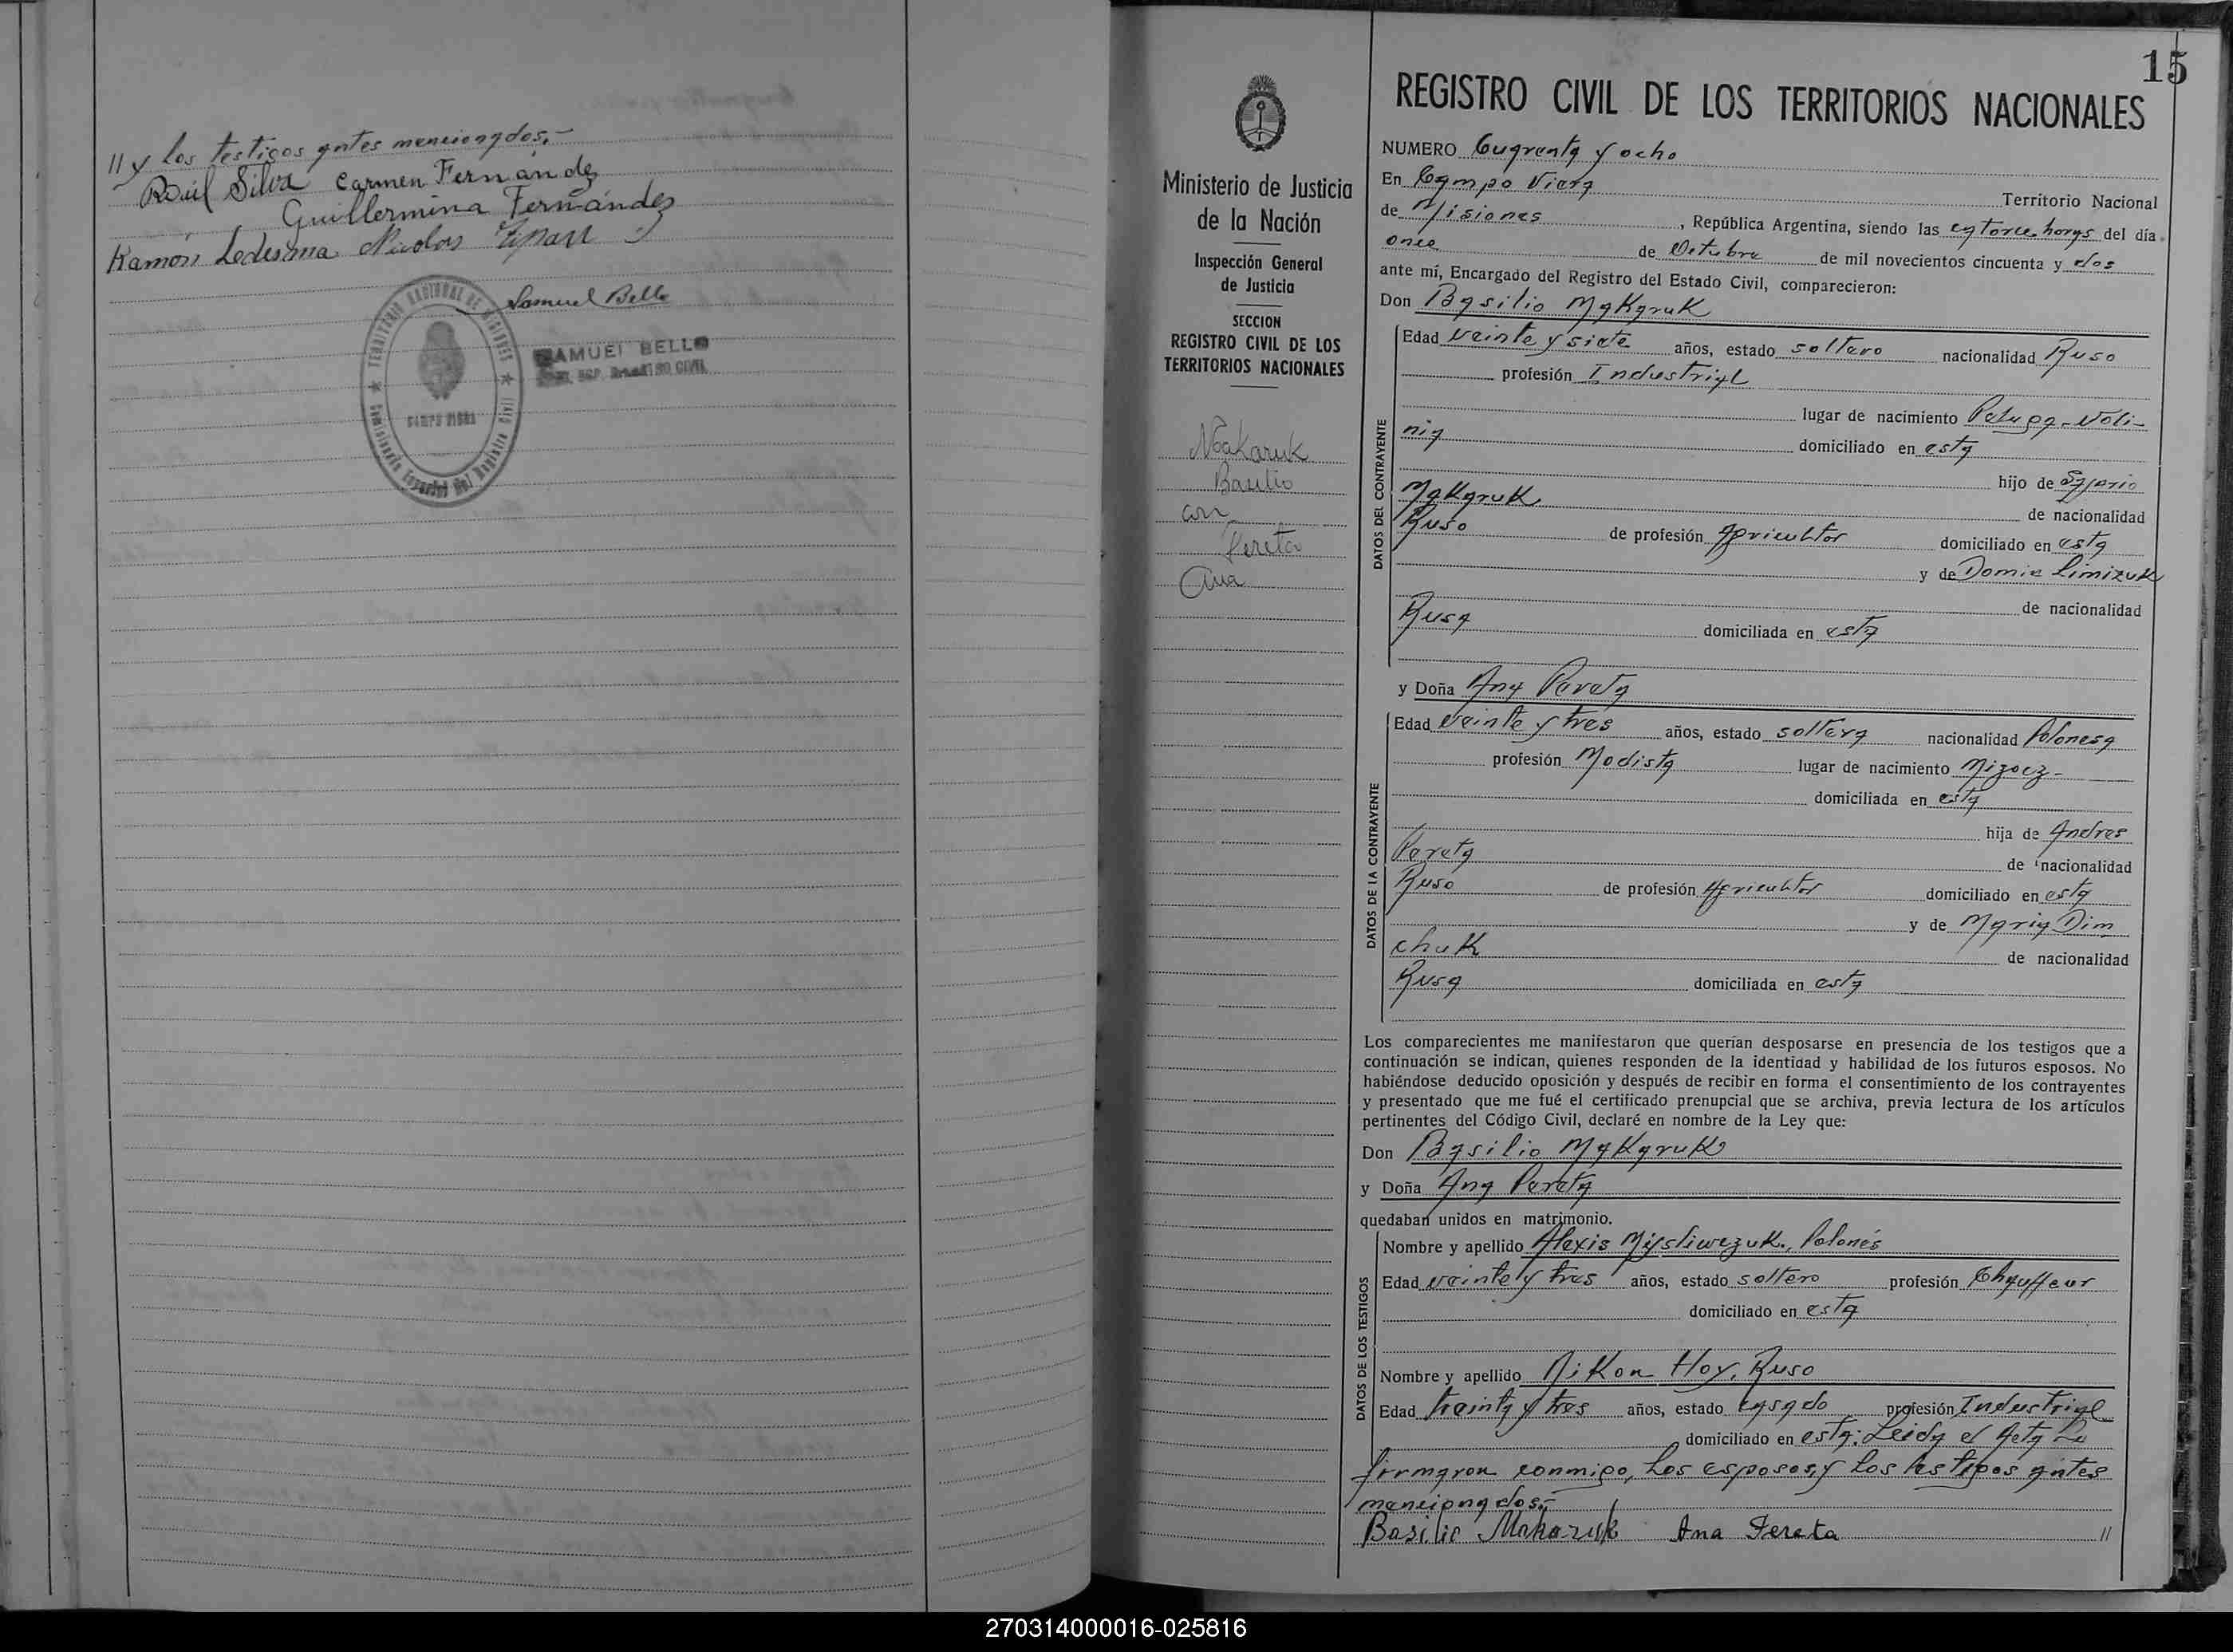 // y los testigos antes mencionados.-
Raúl Silva Carmen Fernández
Guillermina Fernández
Ramón Ledesma Nicolas
Samuel Bello
TERRITORIO NACIONAL DE MISIONES
CAMPO VIERA
Comisionado Especial del Registro Civil
SAMUEL BELLO
15
Ministerio de Justicia
de la Nación
Inspección General
de Justicia
SECCION
REGISTRO CIVIL DE LOS
TERRITORIOS NACIONALES
Makaruk
Basilio
con
Fereta
Ana
REGISTRO CIVIL DE LOS TERRITORIOS NACIONALES
NUMERO Cuarenta y ocho
En Campo Viera Territorio Nacional
de Misiones, República Argentina, siendo las catorce horas del día
once de Octubre de mil novecientos cincuenta y dos
ante mí, Encargado del Registro del Estado Civil, comparecieron:
Don Basilio Makaruk
DATOS DEL CONTRAYENTE
Edad veinte y siete años, estado soltero nacionalidad Ruso
profesión Industrial
lugar de nacimiento Voli-
nia domiciliado en esta
hijo de
Makaruk de nacionalidad
Ruso de profesión Agricultor domiciliado en esta
y de Domie Limizuk
de nacionalidad
Rusa domiciliada en esta
y Doña Ana Fereta
DATOS DE LA CONTRAYENTE
Edad veinte y tres años, estado soltera nacionalidad Polonesa
profesión Modista lugar de nacimiento Mizocz-
domiciliada en esta
hija de Andres
Fereta de nacionalidad
Ruso de profesión Agricultor domiciliado en esta
y de Maria Dim
chuk de nacionalidad
Rusa domiciliada en esta
Los comparecientes me manifestaron que querían desposarse en presencia de los testigos que a
continuación se indican, quienes responden de la identidad y habilidad de los futuros esposos. No
habiéndose deducido oposición y después de recibir en forma el consentimiento de los contrayentes
y presentado que me fué el certificado prenupcial que se archiva, previa lectura de los artículos
pertinentes del Código Civil, declaré en nombre de la Ley que:
Don Basilio Makaruk
y Doña Ana Fereta
quedaban unidos en matrimonio.
DATOS DE LOS TESTIGOS
Nombre y apellido Alexis Mysliwczuk, Polonés
Edad veinte y tres años, estado soltero profesión Chauffeur
domiciliado en esta
Nombre y apellido Nikon Hoy, Ruso
Edad treinta y tres años, estado casado profesión Industrial
domiciliado en esta: Leida el Acta La
firmaron conmigo, los esposos, y los testigos antes
mencionados.-
Basilio Makaruk Ana Fereta //
270314000016-025816